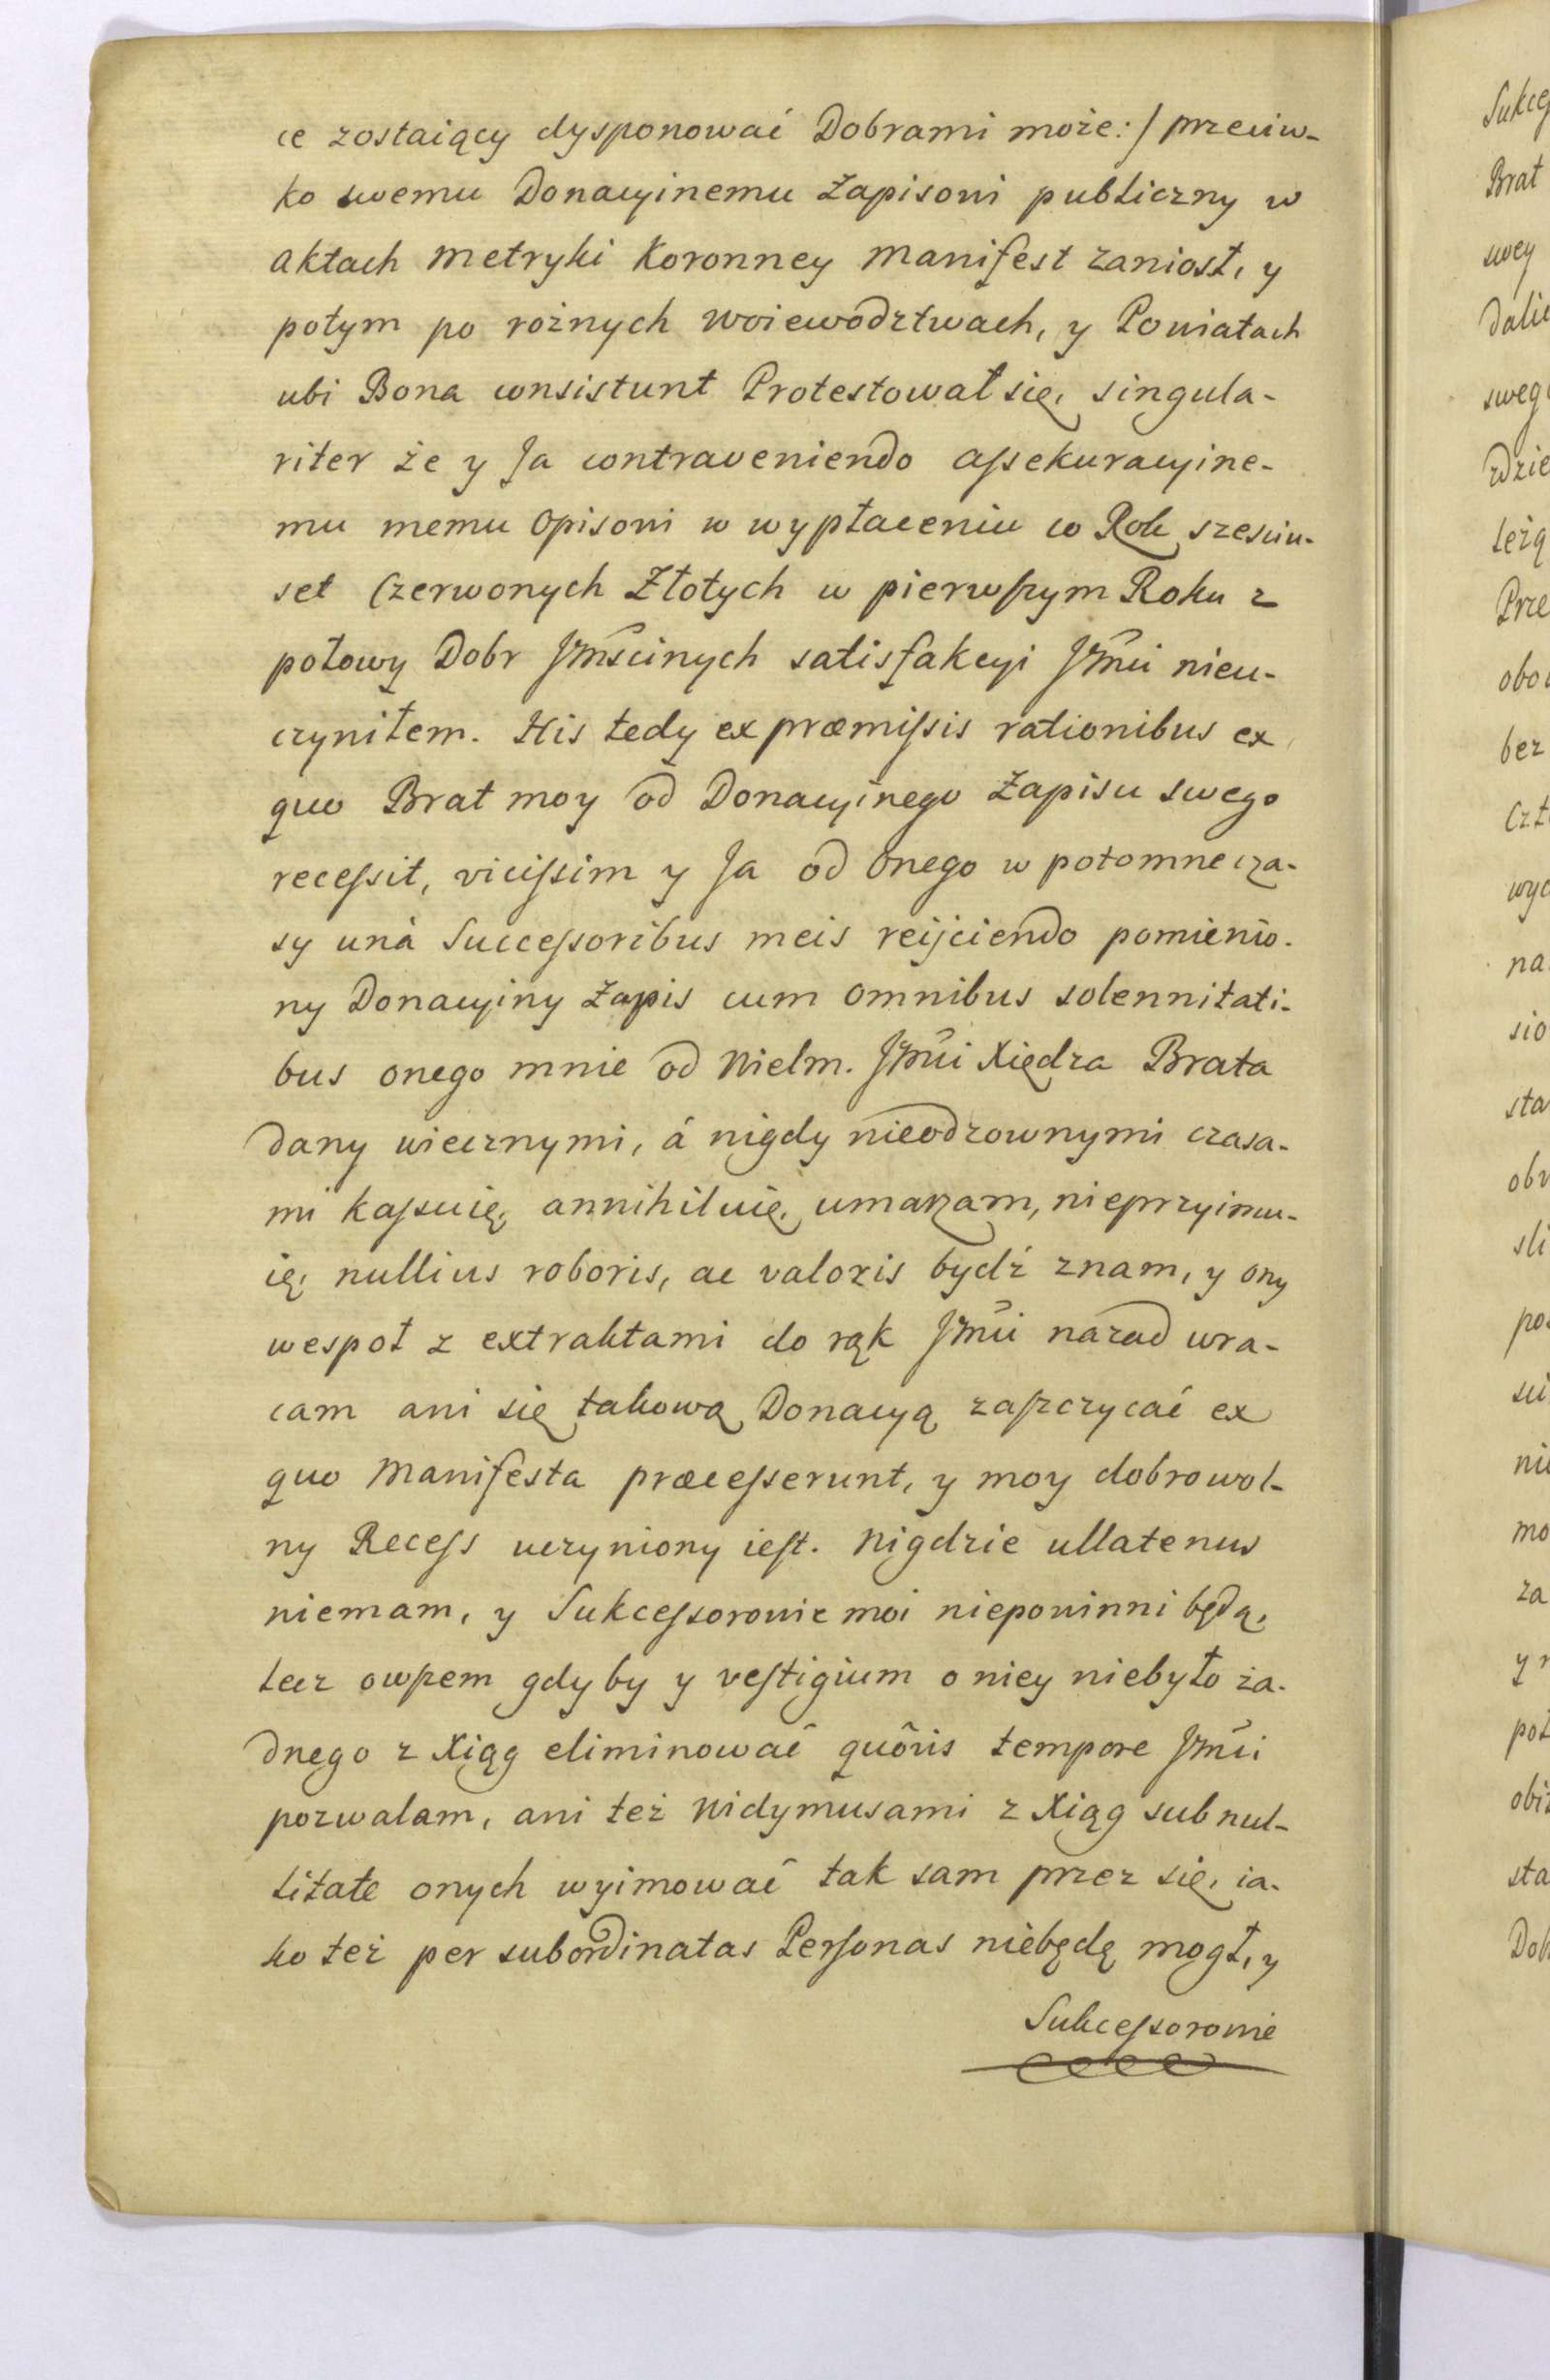 ce zostaiący dysponować Dobrami może:/ przeciw-
ko swemu Donacyinemu Zapisowi publiczny w
Aktach Metryki Koronney Manifest zaniosł, y
potym po rożnych Woiewodztwach, y Powiatach
ubi Bona consistunt Protestował się, singula-
riter że y Ja contraveniendo assekuracyine-
mu memu Opisowi w wypłaceniu co Rok szesciu-
set Czerwonych Złotych w pierwszym Roku z
połowy Dobr Jm̃scinych satisfakcyi Jm̃ci nieu-
czyniłem. His tedy ex præmissis rationibus ex
quo Brat moy od Donacyinego Zapisu swego
recessit, vicissim y Ja od Onego w potomne cza-
sy unà Successoribus meis reijciendo pomienio-
ny Donacyiny Zapis cum omnibus solennitati-
bus onego mnie od Wielm. Jm̃ci Xiędza Brata
dany wiecznymi, á nigdy nieodzownymi czasa-
mi kassuię, annihiluię, umarzam, nieprzyimu-
ię, nullius roboris, ac valoris bydź znam, y ony
wespoł z extraktami do rąk Jm̃ci nazad wra-
cam ani się takową Donacyą zaszczycać ex
quo Manifesta præcesserunt, y moy dobrowol-
ny Recess uczyniony iest. Nigdzie ullatenus
niemam, y Sukcessorowie moi niepowinni będą,
lecz owszem gdyby y vestigium o niey niebyło ża-
dnego z Xiąg eliminować quõvis tempore Jm̃ci
pozwalam, ani też Widymusami z Xiąg sub nul-
litate onych wyimować tak sam przez się, ia-
ko też per subordinatas Personas niebędę mogł, y
Sukcessorowie
Brat
swey